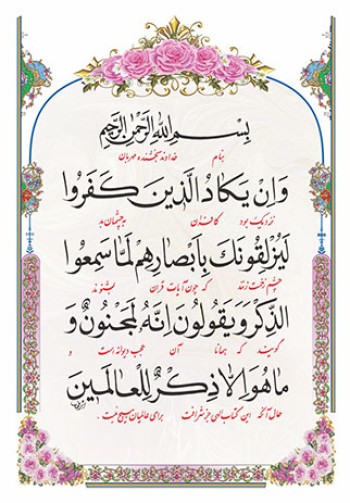 بِسْمِ اللهِ الرَّحْمنِ الرَّحيمِ
بنام خداوند بخشنده و مهربان
وَاِنْ يَكادُ الَّذينَ كَفَرُوا
نزدیک بود کافران به چشمان بد
لَيُزْلِقُونَكَ بِاَبْصارِهِمْ لَمّا سَمِعُوا
چشم زخمت زنند که چون آیات قرآن بشنوند
الذِّكْرَ وَيَقُولُونَ اِنَّهُ لَمَجْنُونٌ وَ
گویند که همانا آن عجب دیوانه است و
ما هُوَ اِلّا ذِكْرٌ لِلْعالَمينَ
حال آنکه این کتاب الهی جز شرافت برای عالمیان هیچ نیست .